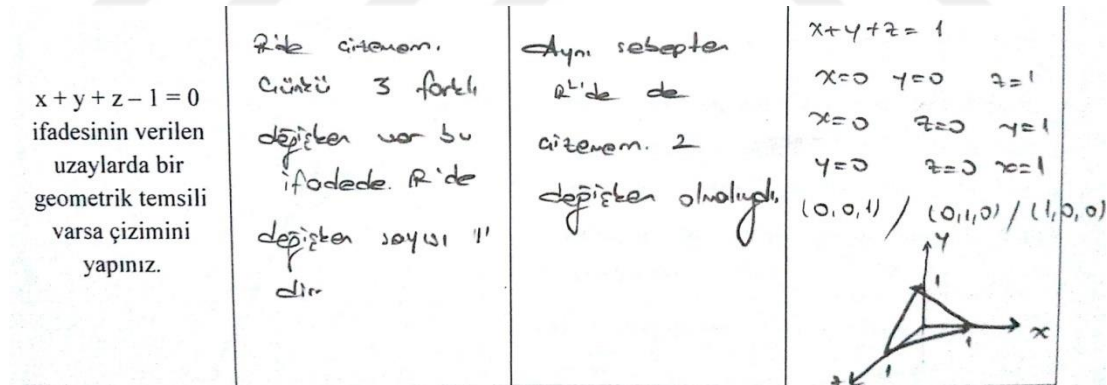 x + y + z – 1 = 0
ifadesinin verilen
uzaylarda bir
geometrik temsili
varsa çizimini
yapınız.
R'de çizemem.
Çünkü 3 farklı
değişken var bu
ifadede. R'de
değişken sayısı 1'
dir
Aynı sebepten
R²'de de
çizemem. 2
değişken olmalıydı.
x+y+z= 1
x=0 y=0 z=1
x=0 z=0 y=1
y=0 z=0 x=1
(0,0,1) / (0,1,0) / (1,0,0)
y
1
x
1
1
z